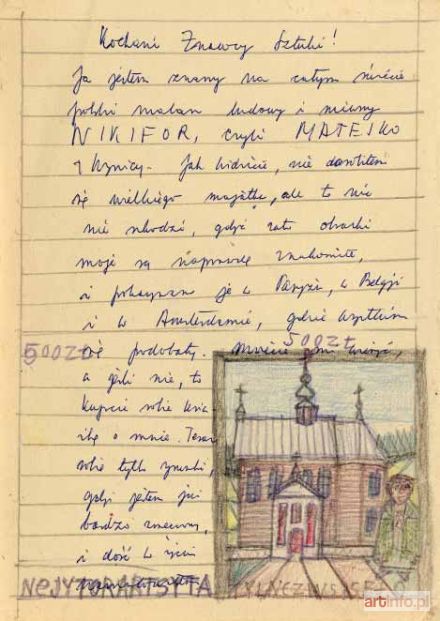 Kochani Znawcy Sztuki!
Ja jestem znany na całym świecie
polski malarz ludowy i niemy
NIKIFOR, czyli MATEJKO
z Krynicy. Jak widzicie, nie dorobiłem
się wielkiego majątku, ale to nic
nie szkodzi, gdyż zato obrazki
moje są naprawdę znakomite,
i pokazywano je w Paryżu, w Belgji
i w Amsterdamie, gdzie wszystkim
500ZŁ się podobały. mi wierzyć,
500ZŁ
a jeśli nie, to
kupcie sobie książ
kę o mnie. Teraz
sobie tylko rysuję,
gdyż jestem już
bardzo zmęczony,
i dość w życiu
NEJYTORARTSYTA
artinfo.pl